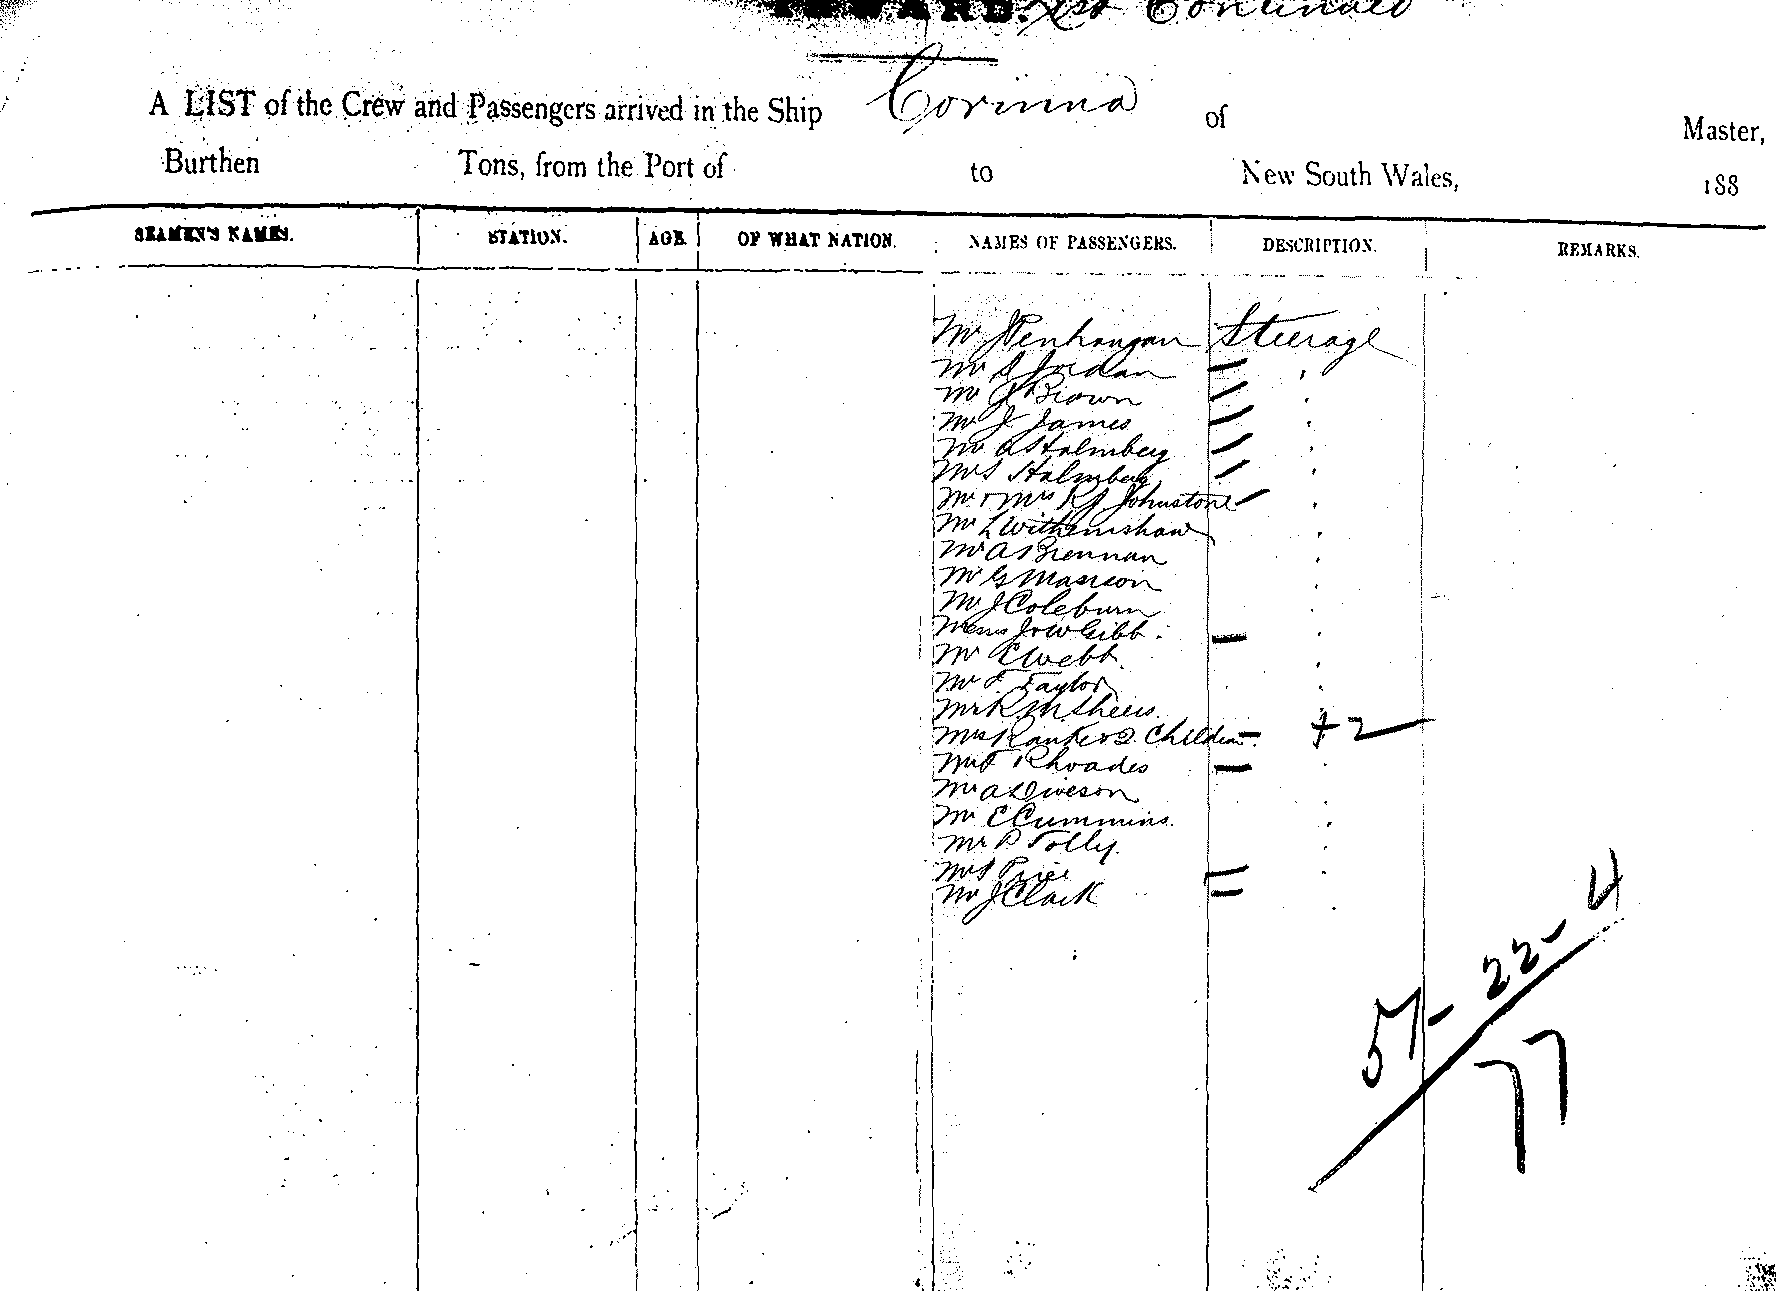 List Continued
A LIST of the Crew and Passengers arrived in the Ship Corinna of Master,
Burthen Tons, from the Port of to New South Wales, 188
SEAMEN'S NAMES. STATION. AGE. OF WHAT NATION. NAMES OF PASSENGERS. DESCRIPTION. REMARKS.
Mr J Penhangan Steerage
Mr S Jordan
Mr J Brown
Mr J James
Mr A Holmberg
Mrs Holmberg
Mr & Mrs R J Johnstone
Mr L Withenshaw
Mr A Brennan
Mr G Manson
Mr J Coleburn
Messrs J & W Gibb
Mr C Webb
Mr F. Taylor
Mr R. M. Sheers
Mrs Ranke & 2 Children +2
Mrs Rhoades
Mr A Liveson
Mr E Cummins.
Mr P Tolly.
Mrs Price
Mr J Clark
51-22-4
77